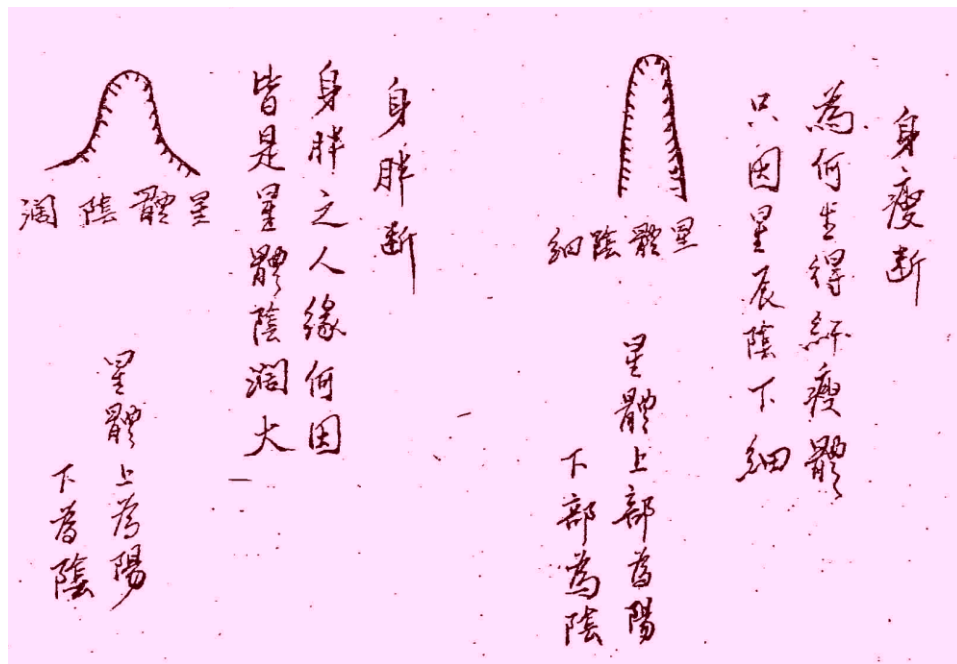 身瘦断
為何生得瘦體
只因星辰陰下細
星體陰細
星體上部為陽
下部為陰
身胖断
身胖之人緣何因
皆是星體陰濶大
星體陰濶
星體上為陽
下為陰